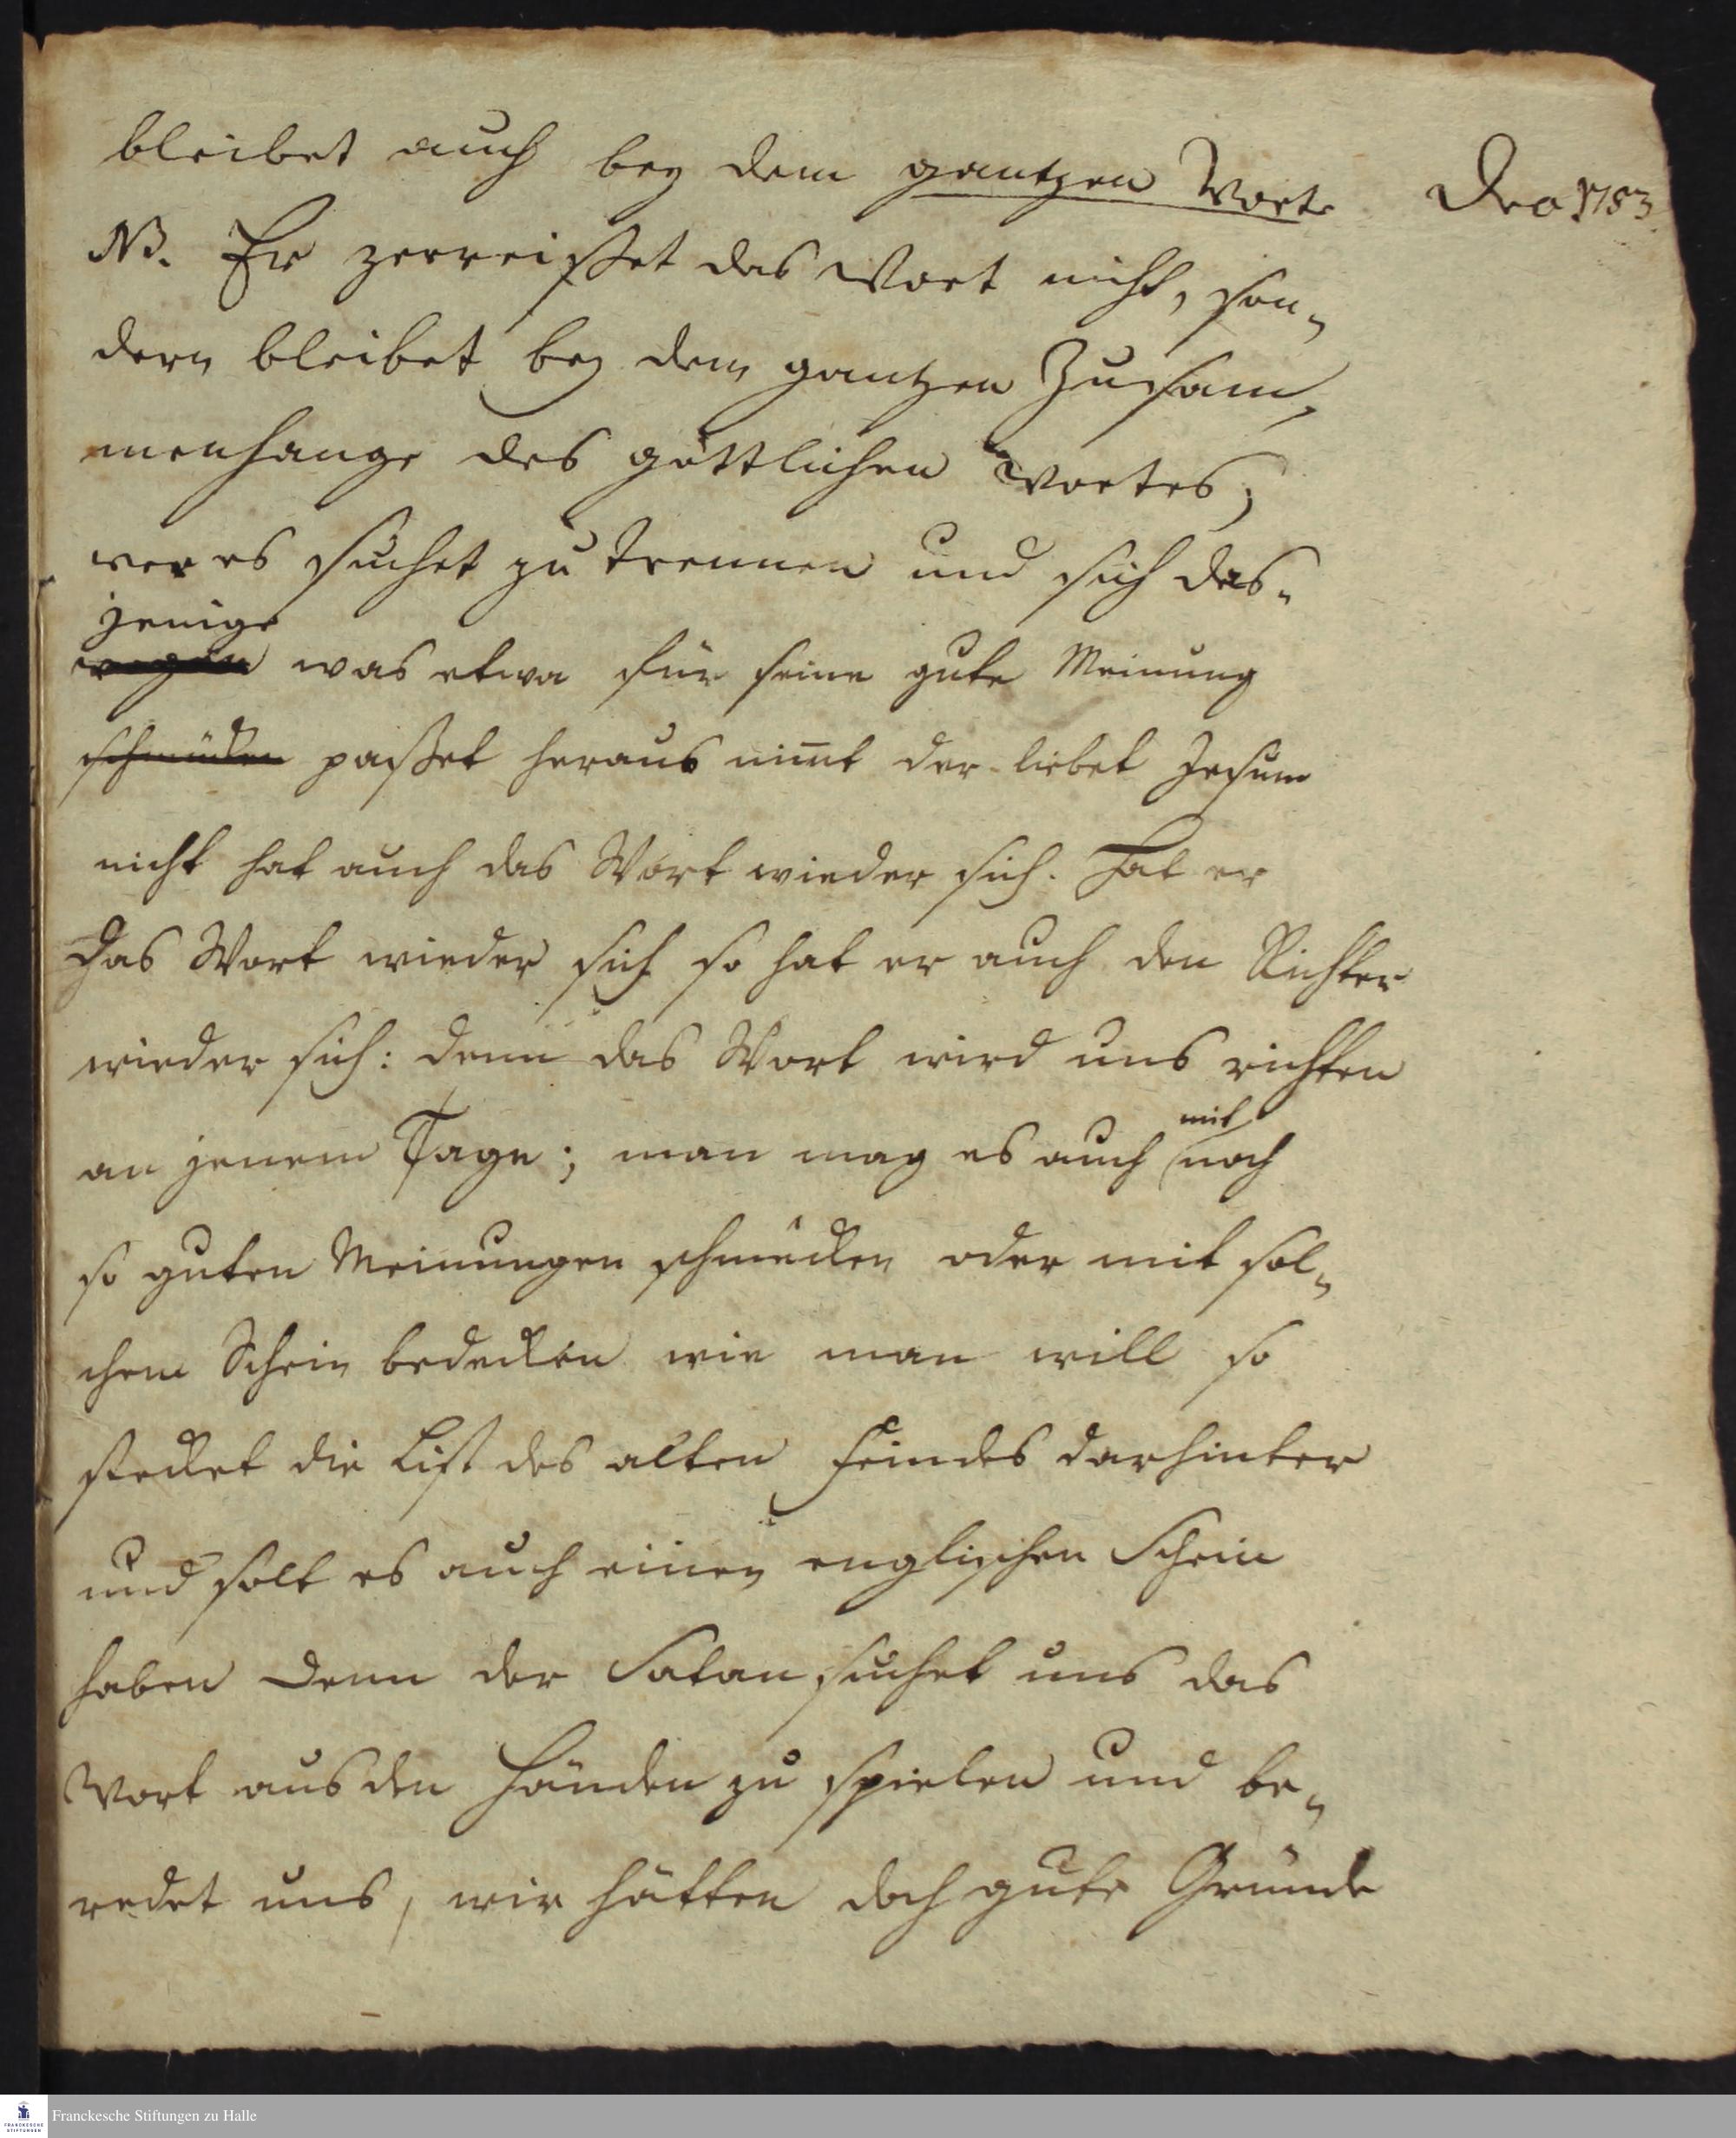 bleibet auch bey dem gantzen Worte
1753
NB. Er zerreißet das Wort nicht, son„
dern bleibet bey dem gantzen Zusam„
menhange des göttlichen Wortes;
wer es suchet zu trennen und sich das„
jenige
was etwa für seine gute Meinung
schmücken paßet heraus nim̄t der liebet Jesum
nicht hat auch das Wort wieder sich. Hat er
das Wort wieder sich so hat er auch den Richter
wieder sich: denn das Wort wird uns richten
mit
an jenem Tage; man mag es auch noch
so guten Meinungen schmücken oder mit sol„
chem Schein bedecken wie man will so
stecket die List des alten Feindes darhinter
und solt es auch einen englischen Schein
haben denn der Satan suchet uns das
Wort aus den Händen zu spielen und be„
redet uns, wir hätten doch gute Gründe
Franckesche Stiftungen zu Halle
FRANCKESCHE
STIFTUNGEN